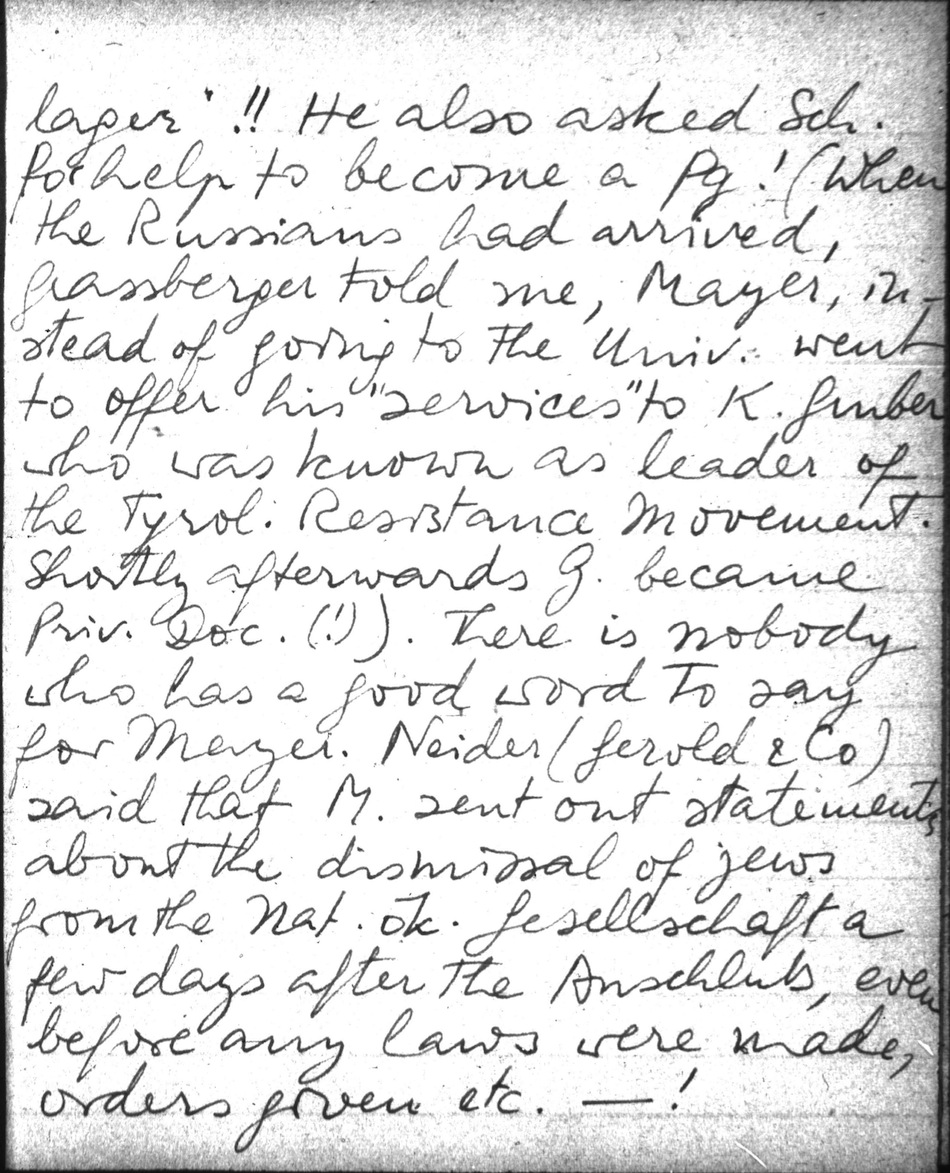 lager" !! He also asked Sch.
for help to become a Pg! (When
the Russians had arrived,
Grassberger told me, Mayer, in-
stead of going to the Univ. went
to offer his "services" to K. Gruber
who was known as leader of
the Tyrol. Resistance Movement.
Shortly afterwards G. became
Priv. Doc. (!)). There is nobody
who has a good word to say
for Mayer. Neider (Gerold & Co)
said that M. sent out statements
about the dismissal of jews
from the Nat. ök. Gesellschaft a
few days after the Anschluß, even
before any laws were made,
orders given etc. — !